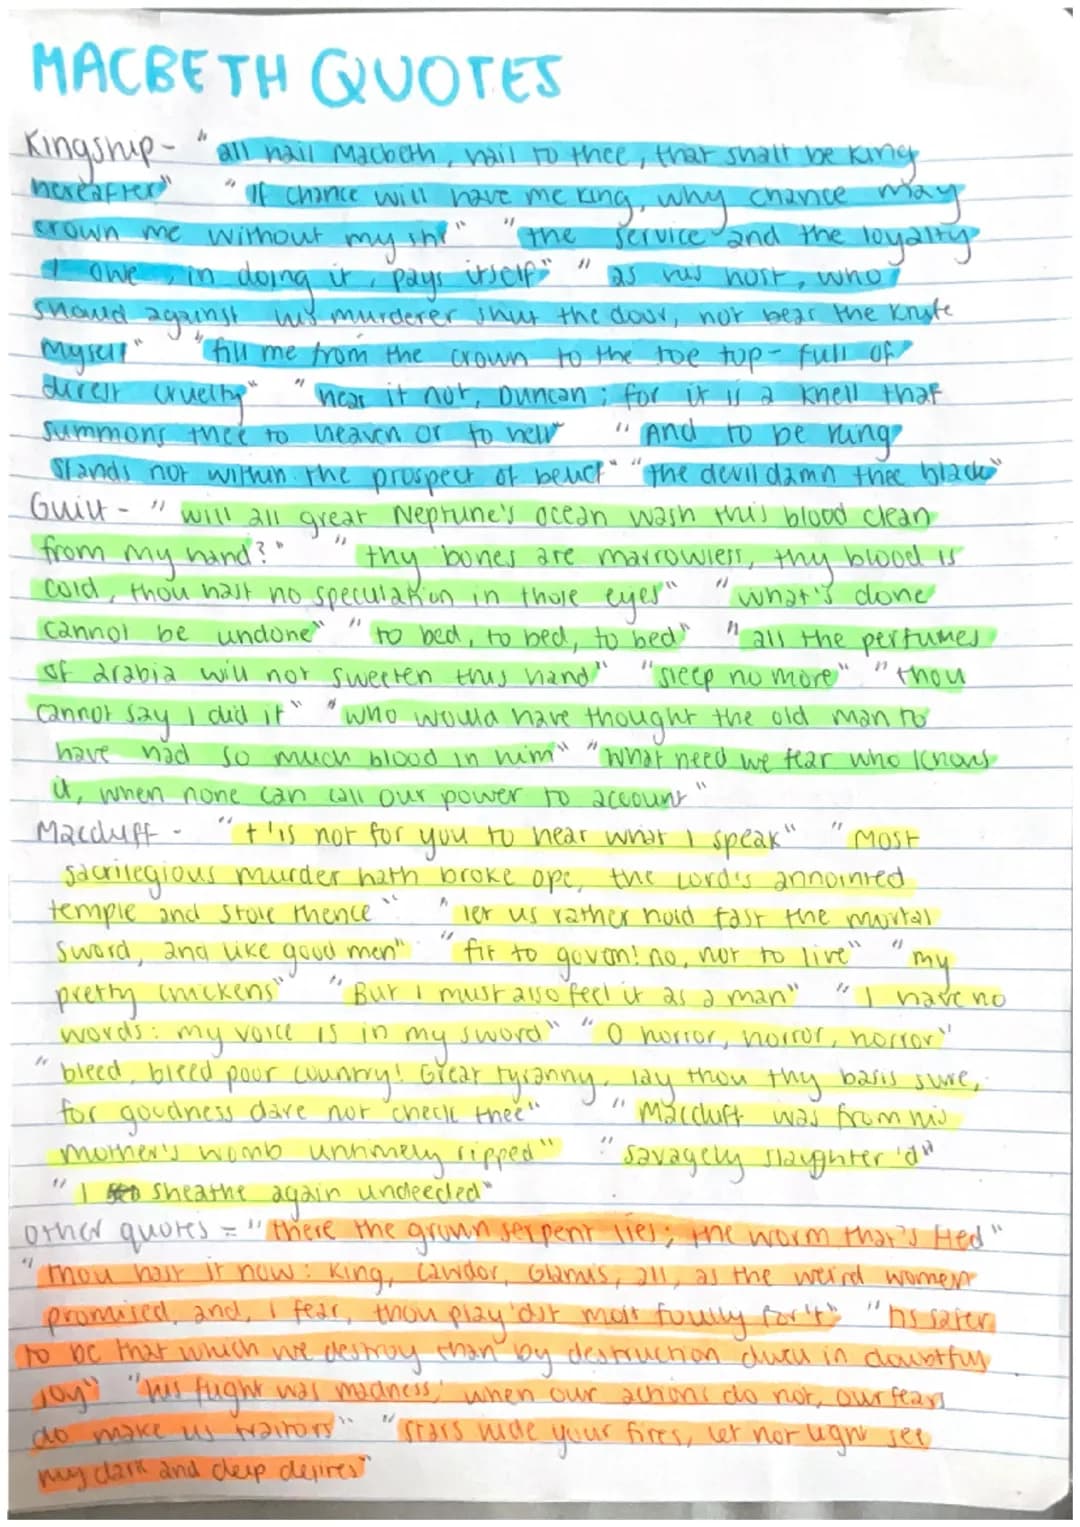 MACBETH QUOTES
Kingship - "all hail Macbeth, hail to thee, that shall be King
hereafter" "If chance will have me king, why chance may
crown me without my stir" "the service and the loyalty
I owe, in doing it, pays itself" "as his host, who
should against his murderer shut the door, not bear the Knife
myself" "fill me from the crown to the toe top-full of
direst cruelty" "hear it not, Duncan; for it is a knell that
summons thee to heaven or to hell" "And to be king
stands not within the prospect of belief" "the devil damn thee black"
Guilt - "will all great Neptune's ocean wash this blood clean
from my hand?" "thy bones are marrowless, thy blood is
cold, thou hast no speculation in those eyes" "what's done
cannot be undone" "to bed, to bed, to bed" "all the perfumes
of arabia will not sweeten this hand" "sleep no more" "thou
cannot say I did it" "who would have thought the old man to
have had so much blood in him" "What need we fear who knows
it, when none can call our power to account"
Macduff - "t'is not for you to hear what I speak" "Most
sacrilegious murder hath broke ope, the Lord's annointed
temple and stole thence" "let us rather hold fast the mortal
sword, and like good men" "fit to govern! no, not to live" "my
pretty chickens" "But I must also feel it as a man" "I have no
words: my voice is in my sword" "O horror, horror, horror"
"bleed, bleed poor country! Great tyranny, lay thou thy basis sure,
for goodness dare not check thee" "Macduff was from his
mother's womb untimely ripped" "savagely slaughter'd"
"I sheathe again undeeded"
other quotes = "there the grown serpent lies; the worm that's fled"
"Thou hast it now: King, Cawdor, Glamis, all, as the weird women
promised, and, I fear, thou play'dst most foully for't" "tis safer
to be that which we destroy than by destruction dwell in doubtful
joy" "his flight was madness; when our actions do not, our fears
do make us traitors" "stars hide your fires, let not light see
my dark and deep desires"